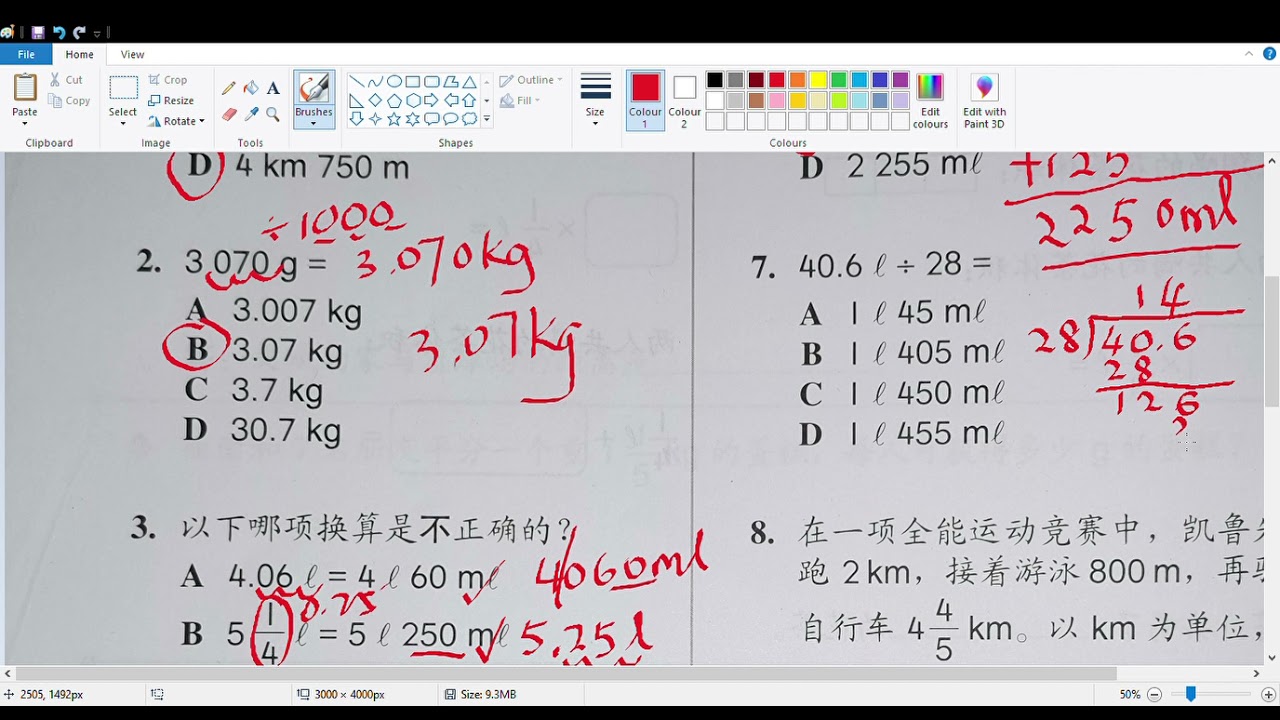 File Home View
Paste Cut Copy Select Crop Resize Rotate A Brushes Outline Fill Size Colour 1 Colour 2 Edit colours Edit with Paint 3D
Clipboard Image Tools Shapes Colours
D 4 km 750 m
÷1000
2. 3 070 g = 3.070kg
A 3.007 kg
B 3.07 kg 3.07kg
C 3.7 kg
D 30.7 kg
3. 以下哪项换算是不正确的?
A 4.06 ℓ = 4 ℓ 60 mℓ 4060ml
0.25
B 5 1/4 ℓ = 5 ℓ 250 mℓ 5.25l
D 2 255 mℓ
+125
2250ml
7. 40.6 ℓ ÷ 28 =
A 1 ℓ 45 mℓ
B 1 ℓ 405 mℓ
C 1 ℓ 450 mℓ
D 1 ℓ 455 mℓ
14
28)40.6
28
126
8. 在一项全能运动竞赛中，凯鲁
跑 2 km，接着游泳 800 m，再
自行车 4 4/5 km。以 km 为单位，
2505, 1492px 3000 × 4000px Size: 9.3MB 50%